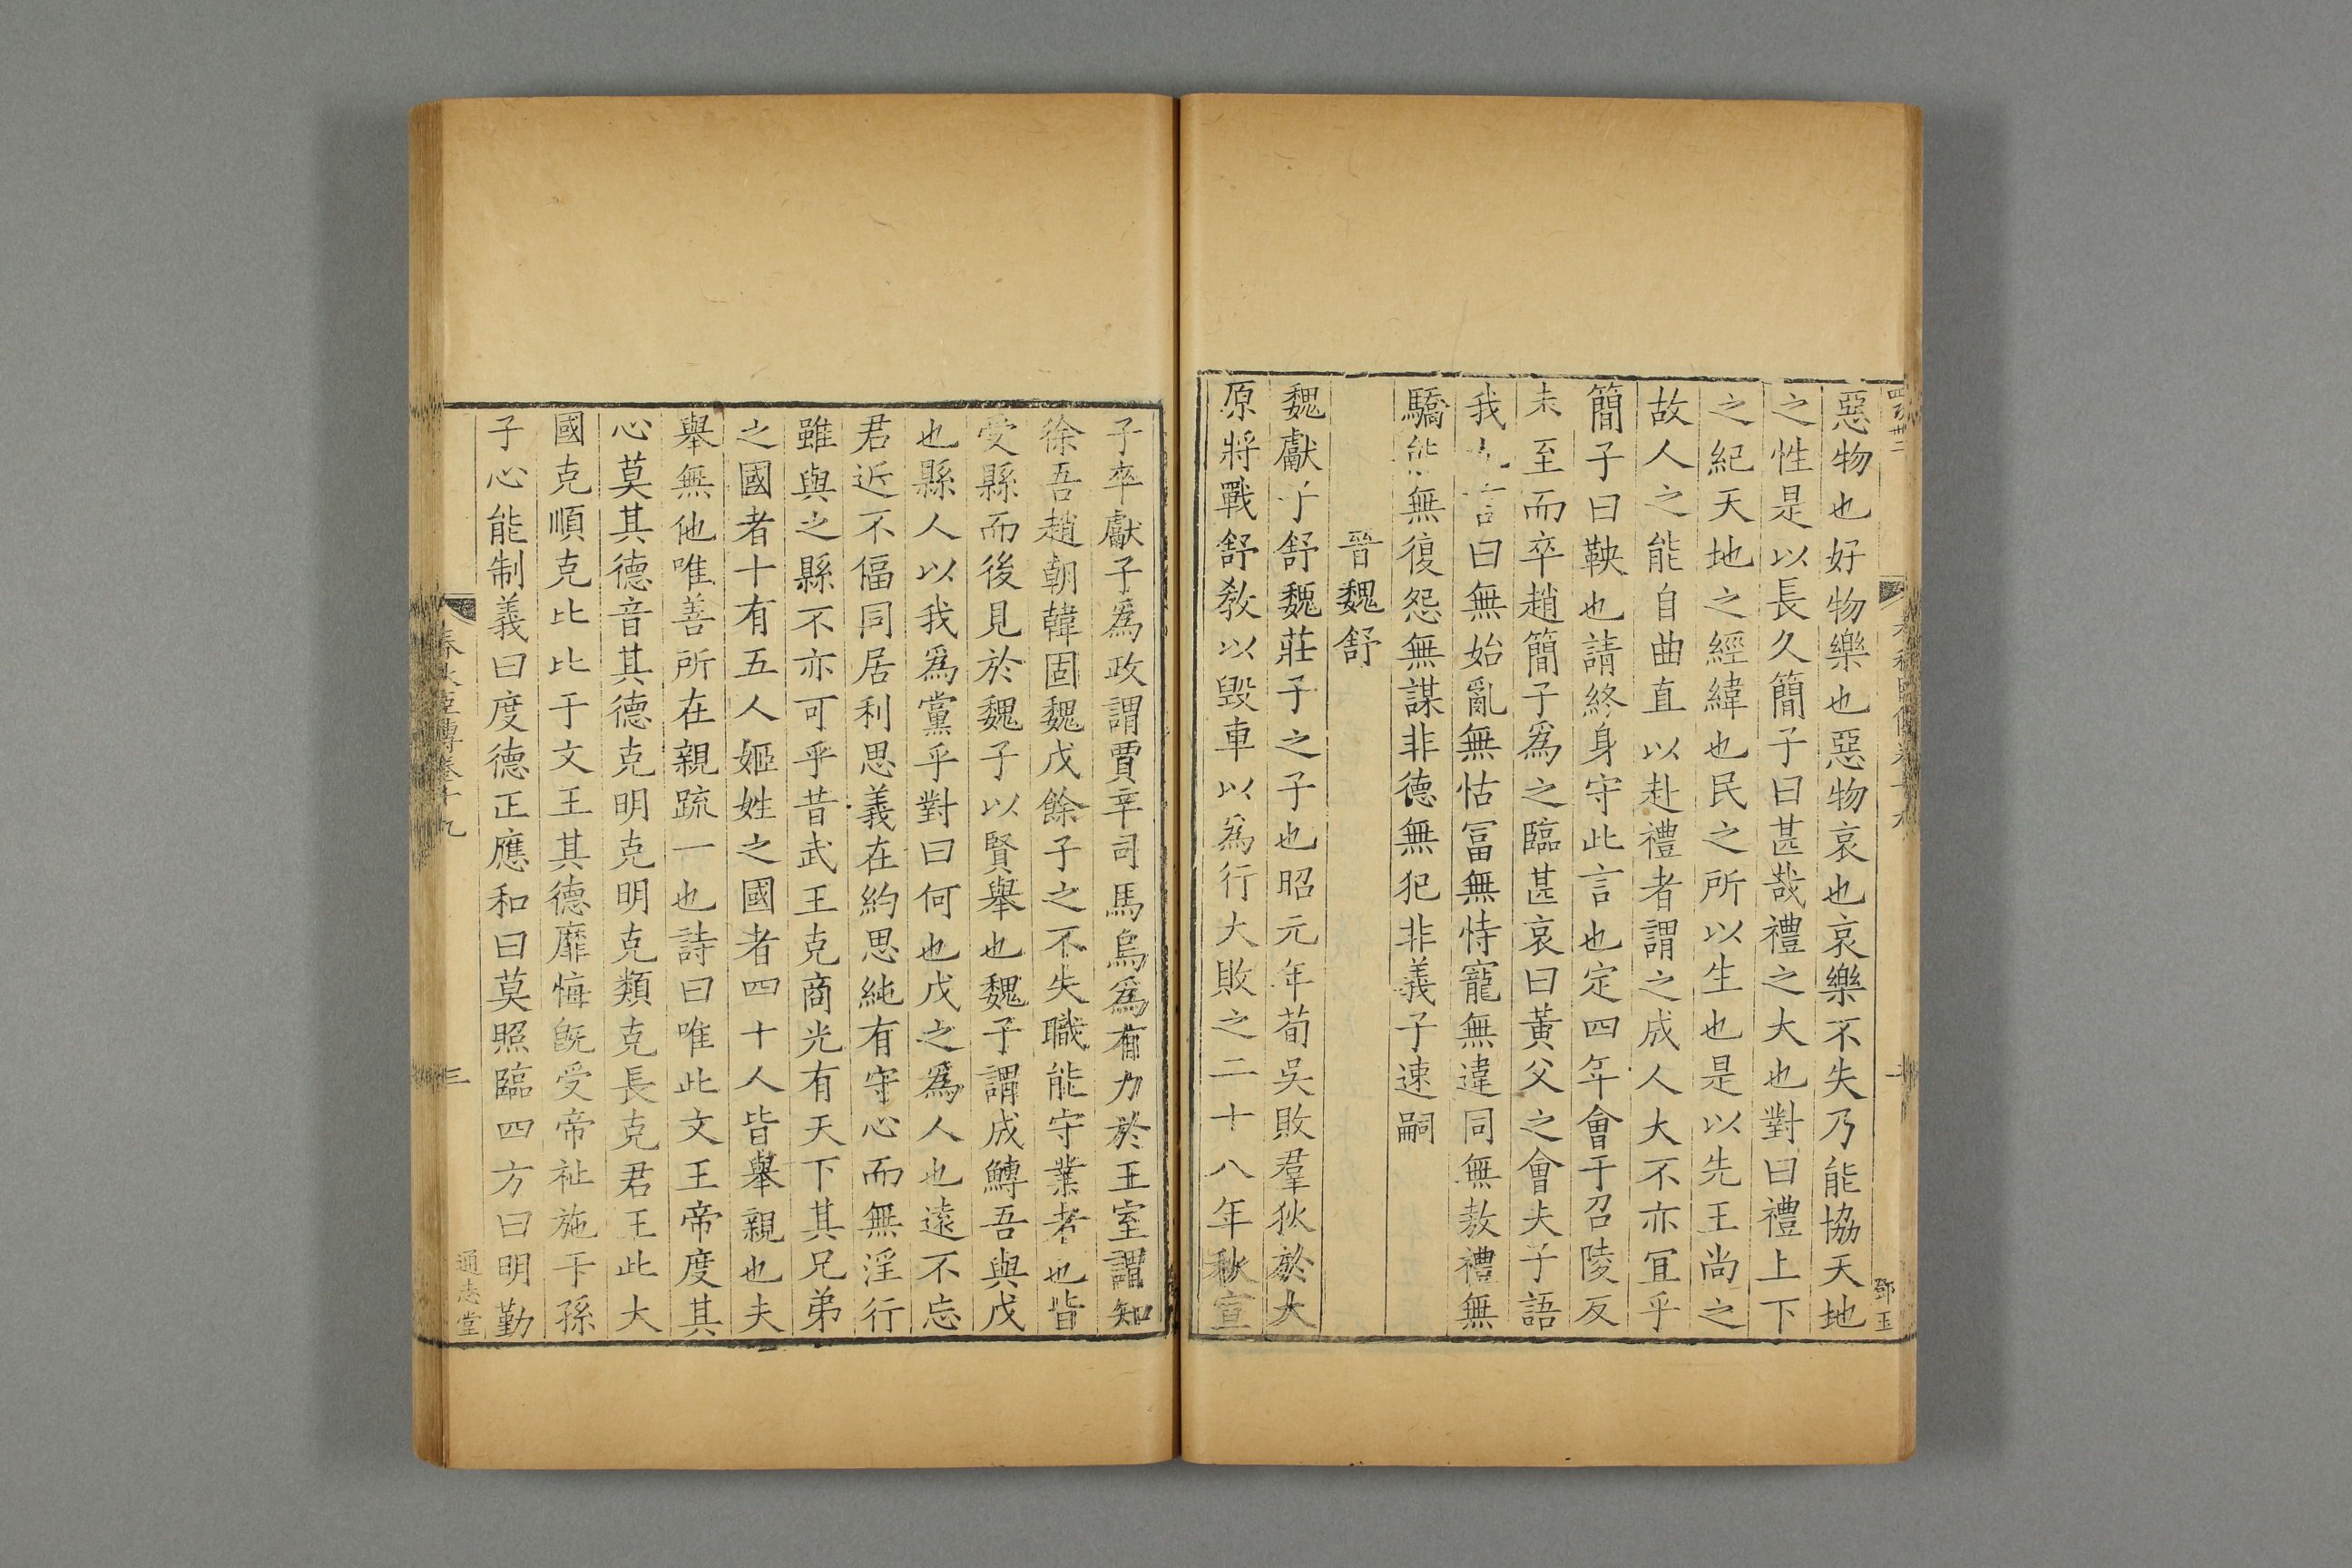 惡物也好物樂也惡物哀也哀樂不失乃能協天地
之性是以長久簡子曰甚哉禮之大也對曰禮上下
之紀天地之經緯也民之所以生也是以先王尚之
故人之能自曲直以赴禮者謂之成人大不亦宜乎
簡子曰鞅也請終身守此言也定四年會于召陵反
未至而卒趙簡子爲之臨甚哀曰黃父之會夫子語
我九言曰無始亂無怙冨無恃寵無違同無敖禮無
驕能無復怨無謀非德無犯非義子速嗣
晉魏舒
魏獻子舒魏莊子之子也昭元年荀吳敗羣狄於大
原將戰舒敎以毀車以爲行大敗之二十八年秋宣
子卒獻子爲政謂賈辛司馬烏爲有力於王室謂知
徐吾趙朝韓固魏戊餘子之不失職能守業者也皆
受縣而後見於魏子以賢舉也魏子謂成鱄吾與戊
也縣人以我爲黨乎對曰何也戊之爲人也遠不忘
君近不偪同居利思義在約思純有守心而無淫行
雖與之縣不亦可乎昔武王克商光有天下其兄弟
之國者十有五人姬姓之國者四十人皆舉親也夫
舉無他唯善所在親疏一也詩曰唯此文王帝度其
心莫其德音其德克明克明克類克長克君王此大
國克順克比比于文王其德靡悔旣受帝祉施于孫
子心能制義曰度德正應和曰莫照臨四方曰明勤
春秋臣傳卷十九
三
通志堂
鄧玉